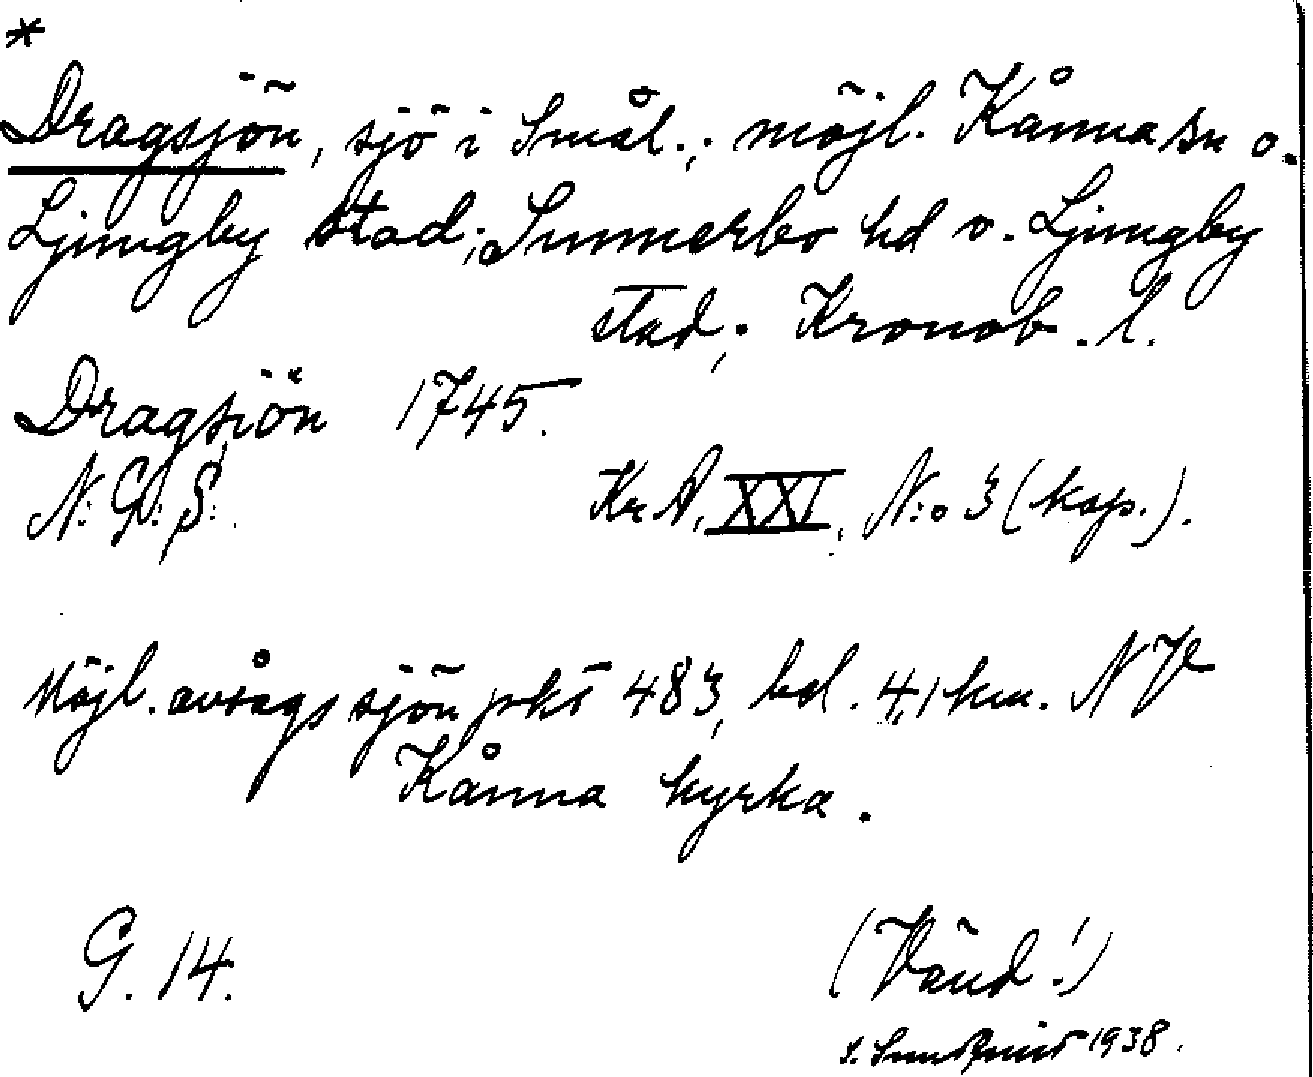 *
Dragsjön, sjö i Smål.; möjl. Kånna sn o.
Ljungby stad; Sunnerbo hd o. Ljungby
stad; Kronob. l.
Dragsjön 1745.
N: G: S:. KrA, XXI, N:o 3 (kop.).
Möjl. avsågs sjön pkt 483, bel. 4,1 km. NV
Kånna kyrka.
G. 14. (Vänd!)
1938.